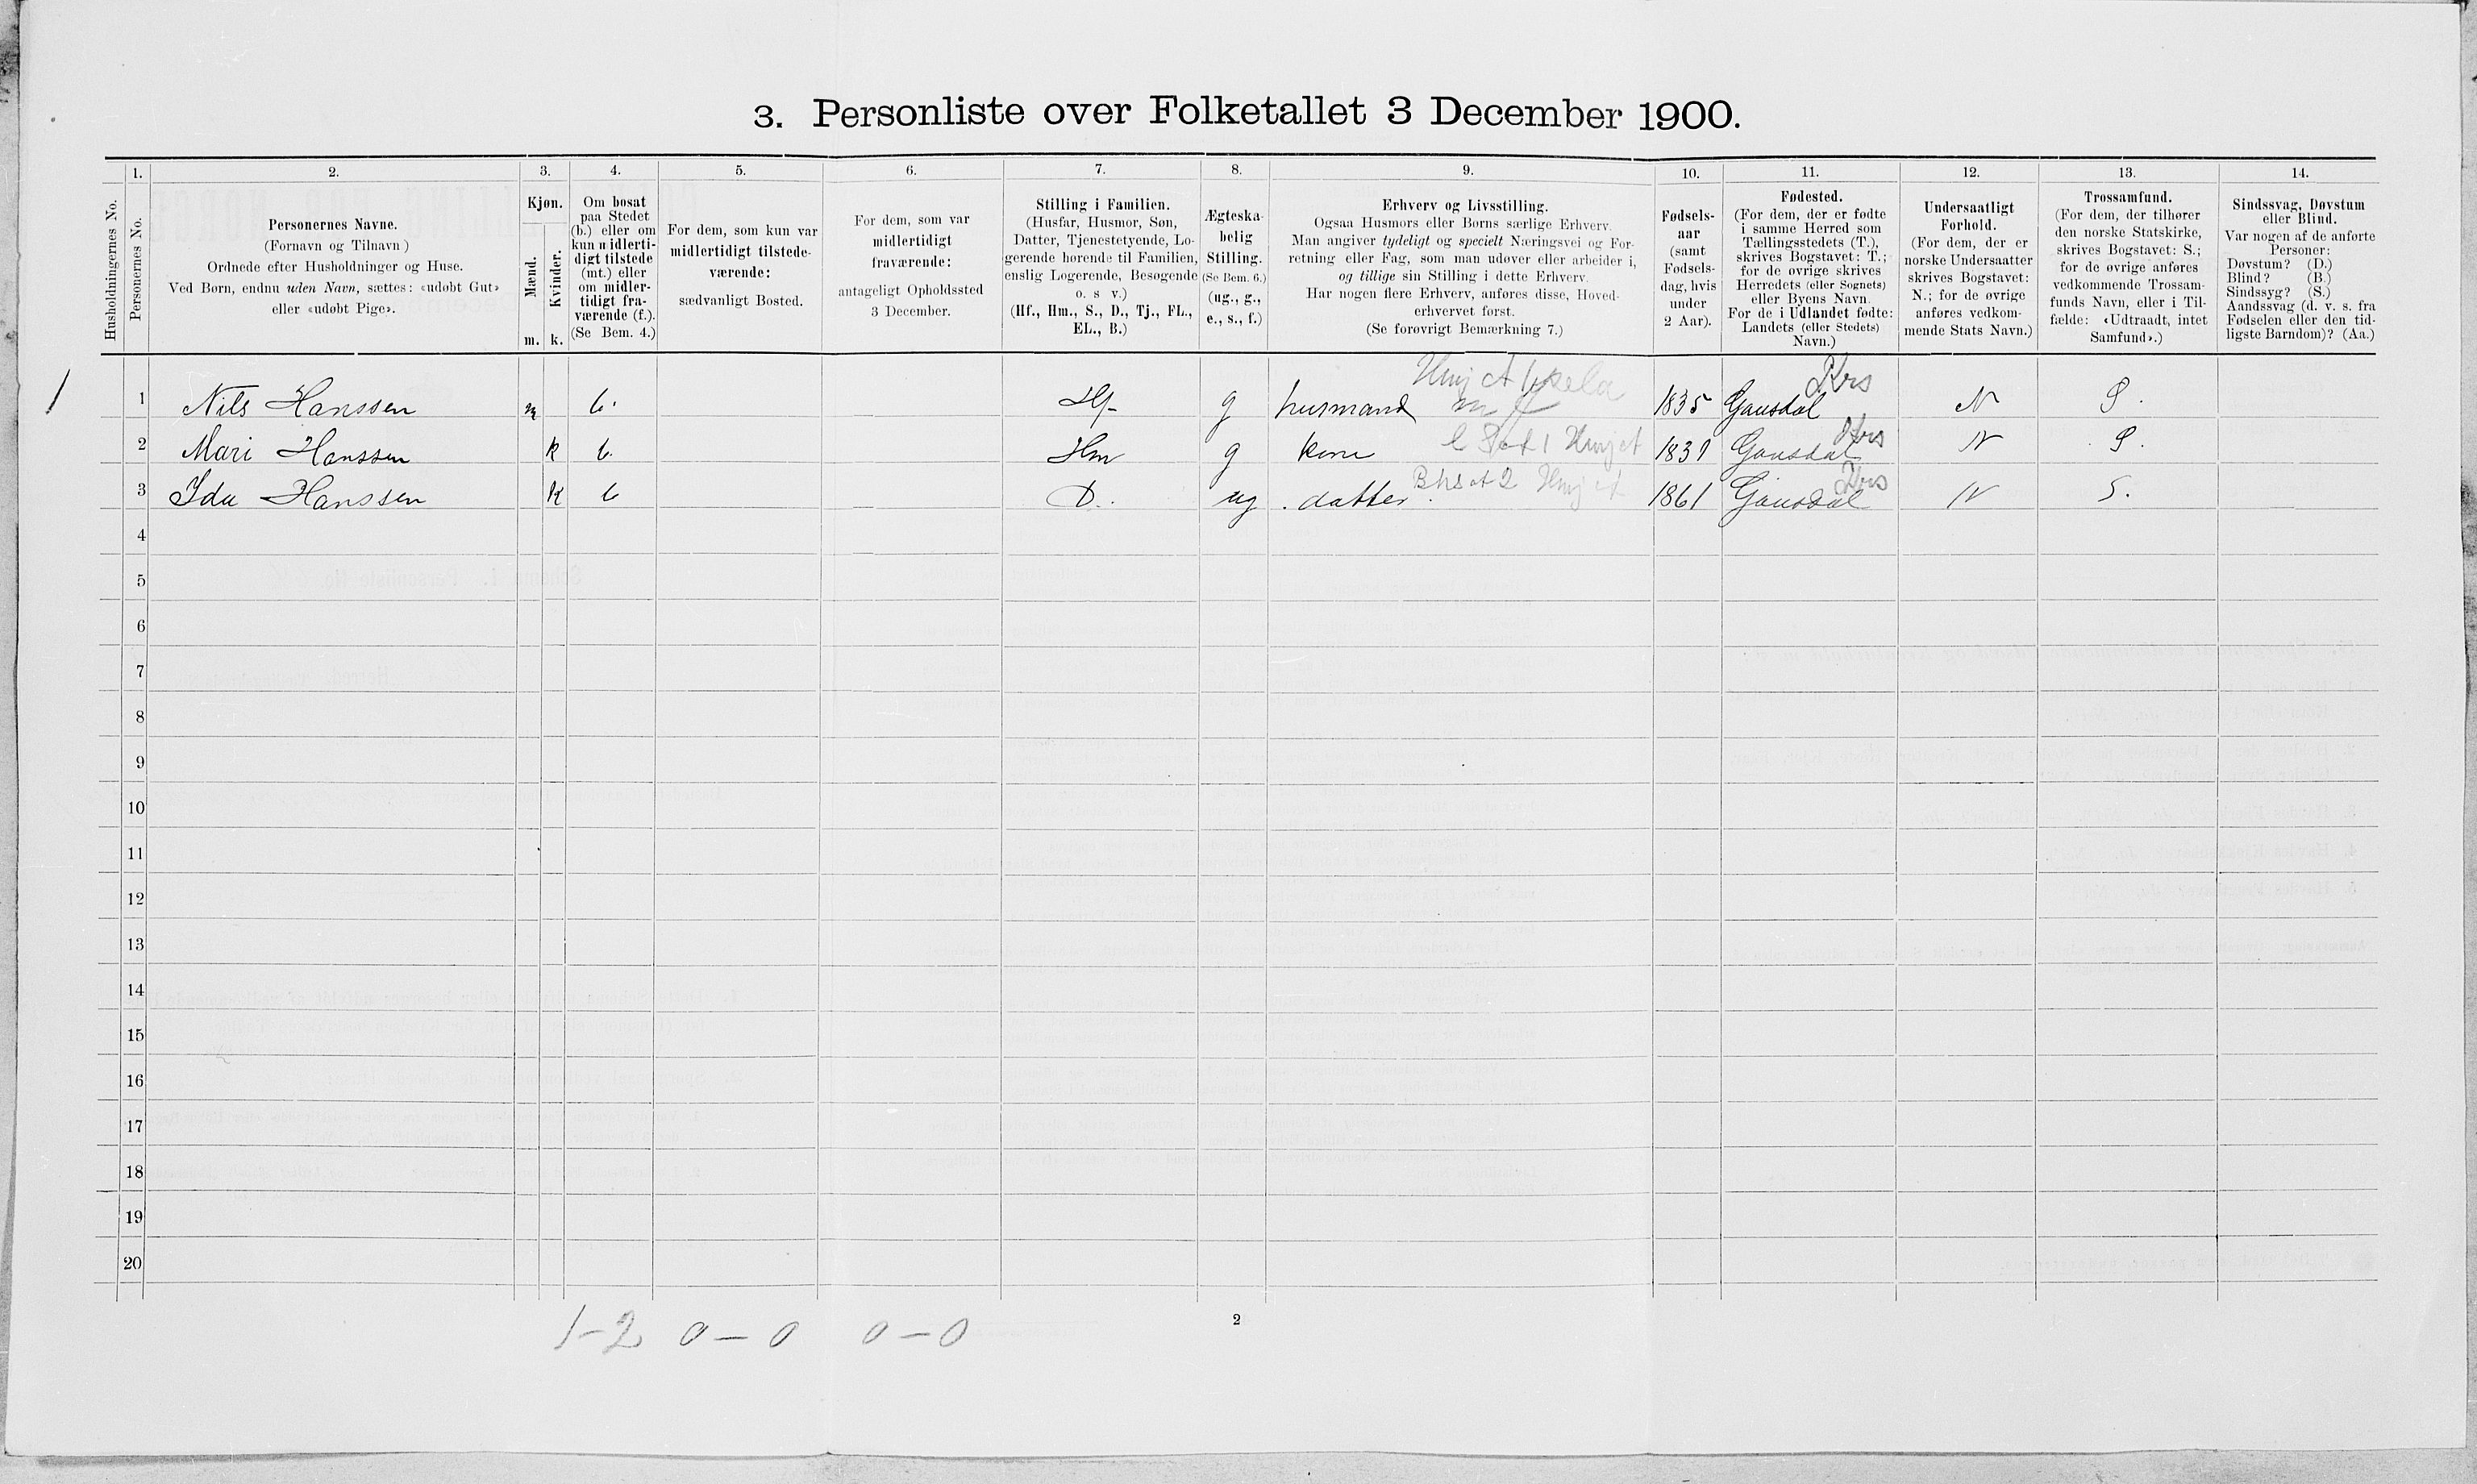 3. Personliste over Folketallet 3 December 1900.
Husholdningernes No.
1.
Personernes No.
2.
Personernes Navne.
(Fornavn og Tilnavn)
Ordnede efter Husholdninger og Huse.
Ved Børn, endnu uden Navn, sættes: «udøbt Gut»
eller «udøbt Pige».
3.
Kjøn.
Mænd.
Kvinder.
m. k.
4.
Om bosat
paa Stedet
(b.) eller om
kun midlerti-
digt tilstede
(mt.) eller
om midler-
tidigt fra-
værende (f.).
(Se Bem. 4.)
5.
For dem, som kun var
midlertidigt tilstede-
værende:
sædvanligt Bosted.
6.
For dem, som var
midlertidigt
fraværende:
antageligt Opholdssted
3 December.
7.
Stilling i Familien.
(Husfar, Husmor, Søn,
Datter, Tjenestetyende, Lo-
gerende hørende til Familien,
enslig Logerende, Besøgende
o. s v.)
(Hf., Hm., S., D., Tj., FL.,
EL., B.)
8.
Ægteska-
belig
Stilling.
(Se Bem. 6.)
(ug., g.,
e., s., f.)
9.
Erhverv og Livsstilling.
Ogsaa Husmors eller Børns særlige Erhverv.
Man angiver tydeligt og specielt Næringsvei og For-
retning eller Fag, som man udøver eller arbeider i,
og tillige sin Stilling i dette Erhverv.
Har nogen flere Erhverv, anføres disse, Hoved-
erhvervet først.
(Se forøvrigt Bemærkning 7.)
10.
Fødsels-
aar
(samt
Fødsels-
dag, hvis
under
2 Aar).
11.
Fødested.
(For dem, der er fødte
i samme Herred som
Tællingsstedets (T.),
skrives Bogstavet: T.;
for de øvrige skrives
Herredets (eller Sognets)
eller Byens Navn.
For de i Udlandet fødte:
Landets (eller Stedets)
Navn.)
12.
Undersaatligt
Forhold.
(For dem, der er
norske Undersaatter
skrives Bogstavet:
N.; for de øvrige
anføres vedkom-
mende Stats Navn.)
13.
Trossamfund.
(For dem, der tilhører
den norske Statskirke,
skrives Bogstavet: S.;
for de øvrige anføres
vedkommende Trossam-
funds Navn, eller i Til-
fælde: «Udtraadt, intet
Samfund».)
14.
Sindssvag, Døvstum
eller Blind.
Var nogen af de anførte
Personer:
Døvstum? (D.)
Blind? (B.)
Sindssyg? (S.)
Aandssvag (d. v. s. fra
Fødselen eller den tid-
ligste Barndom)? (Aa.)
1 1 Nils Hanssen m b. Hf g husmand 1835 Gausdal N S.
2 Mari Hanssen k b. Hm g kone Gausdal N S.
3 Ida Hanssen k b D. ug datter 1861 Gausdal N S.
4
5
6
7
8
9
10
11
12
13
14
15
16
17
18
19
20
1-2 0-0 0-0
2